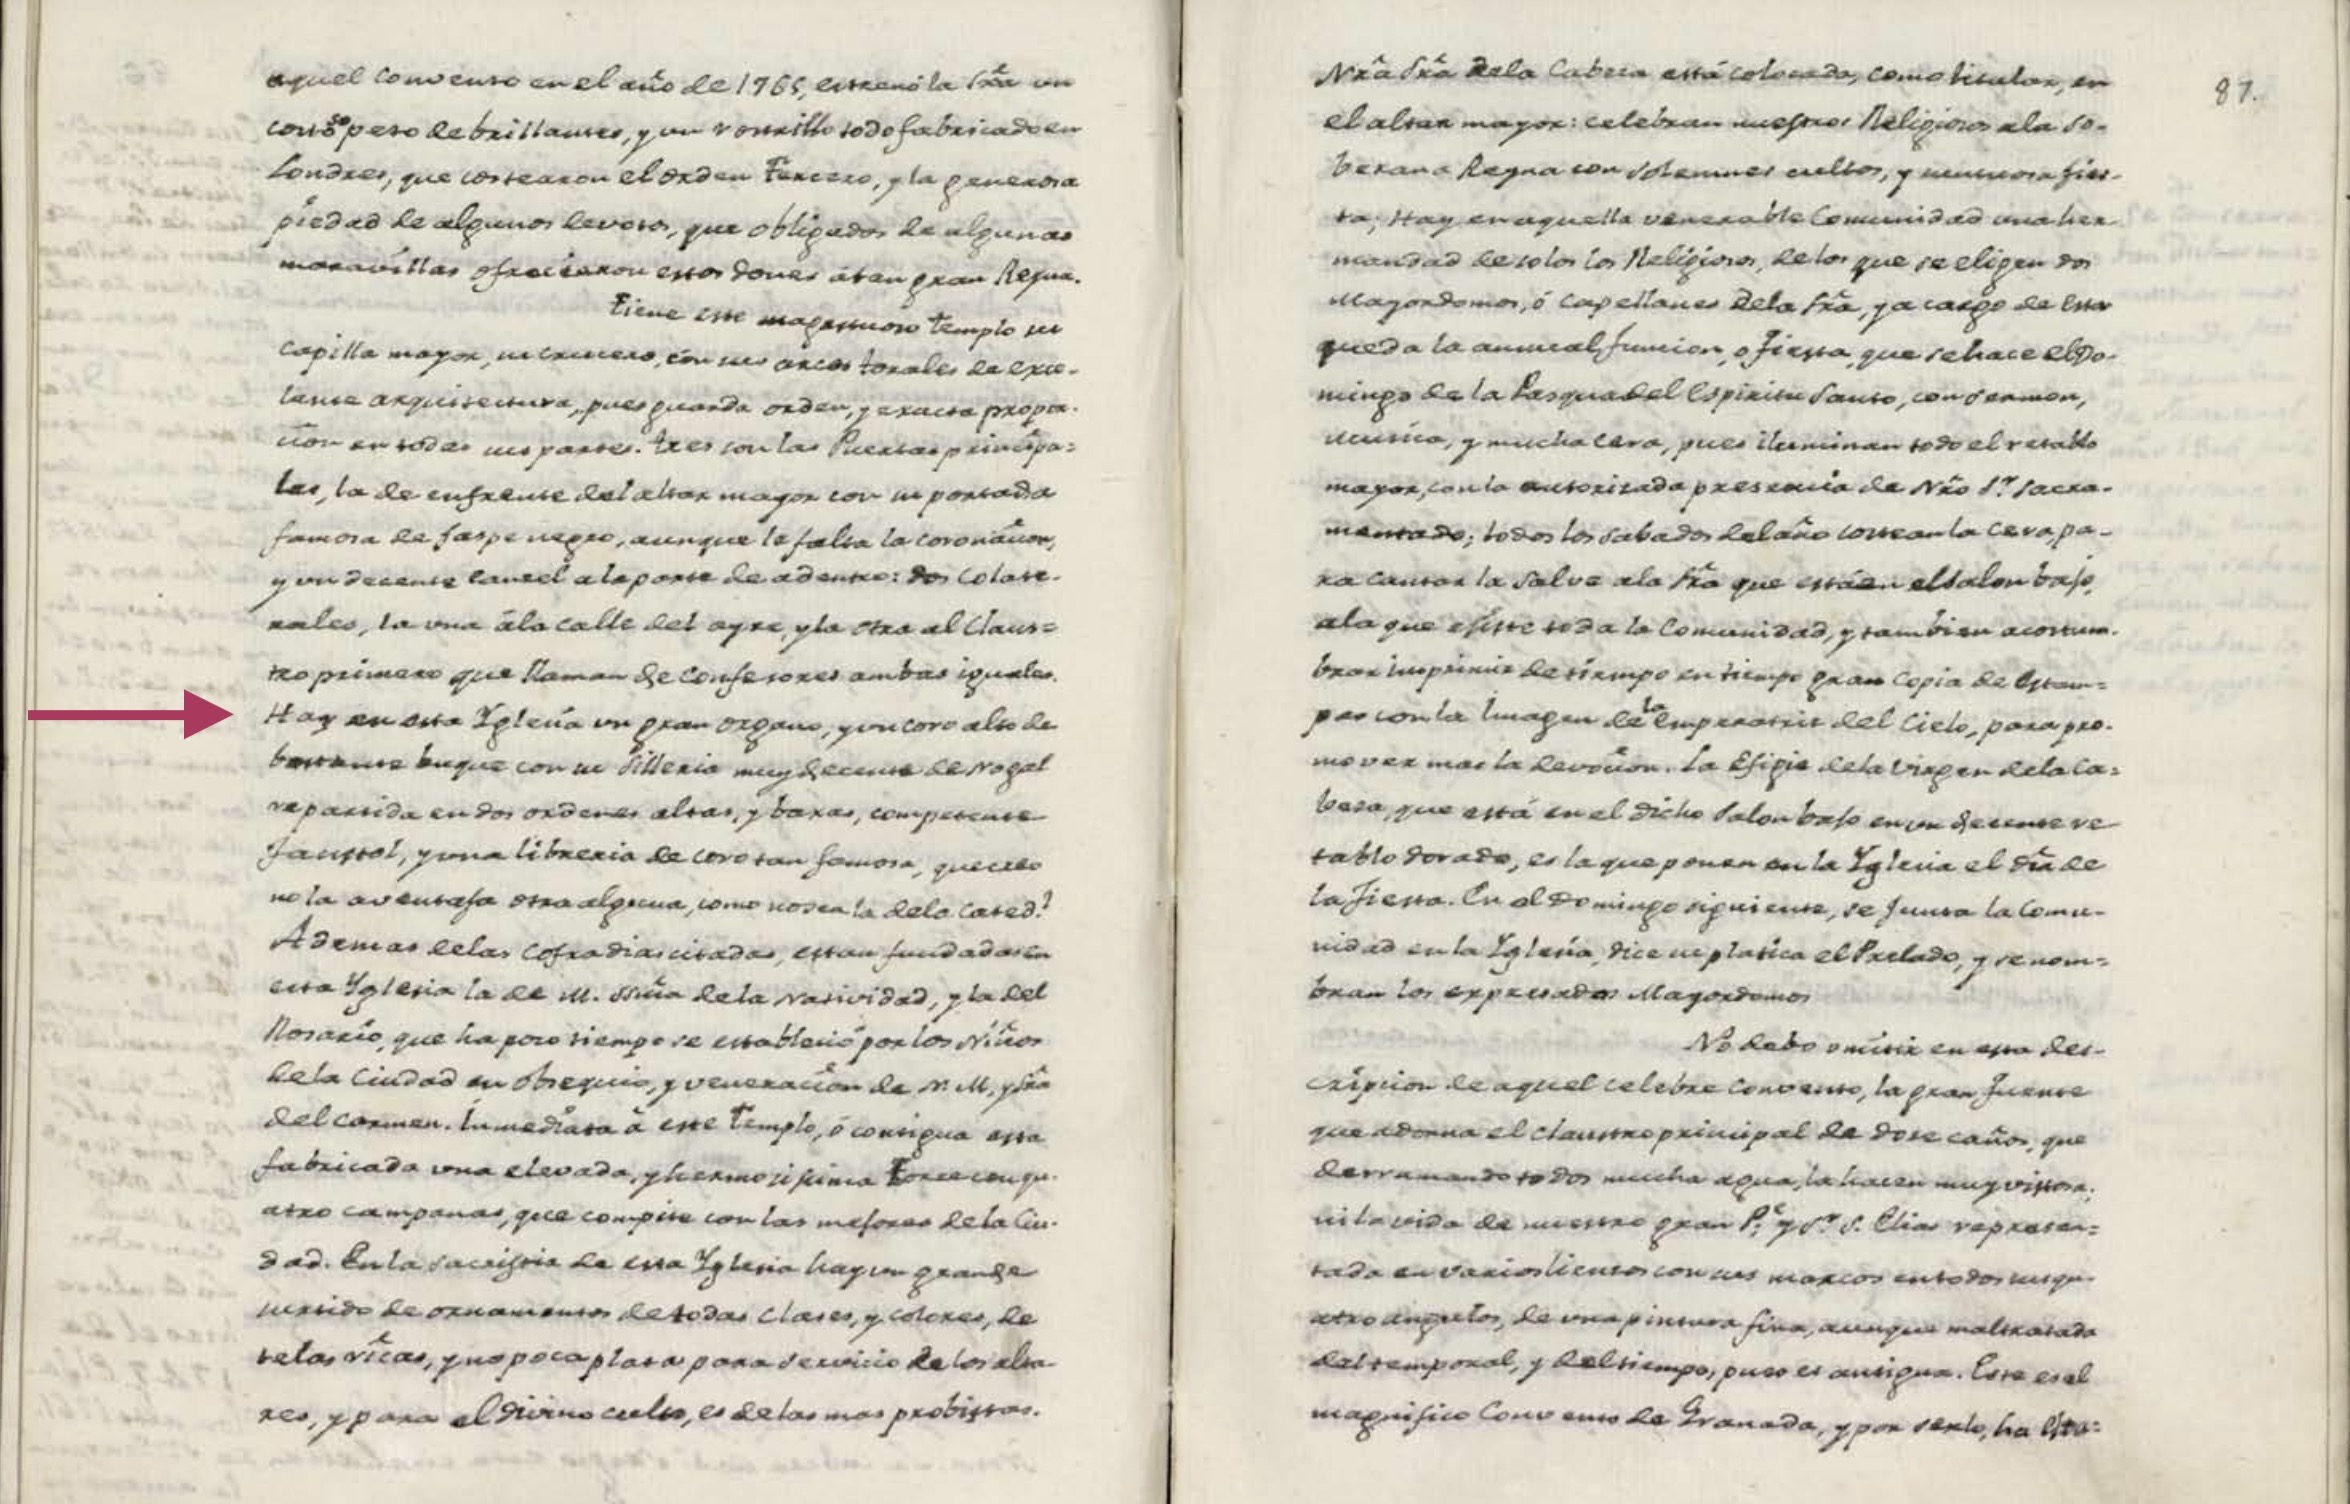 aquel convento en el año de 1765, estrenó la Sra̅ un
costoso peto de brillantes, y un rostrillo todo fabricado en
Londres, que costearon el orden Tercero, y la generosa
piedad de algunos devotos, que obligados de algunas
maravillas ofrecieron estos dones átan gran Reyna.
Tiene este magestuoso Templo su
capilla mayor, su crucero, con sus arcos torales de exce-
lente arquitectura, pues guarda orden, y exacta propor-
cion en todas sus partes. tres son las Puertas principa=
les, la de enfrente del altar mayor con su portada
famosa de jaspe negro, aunque le falta la coronacion,
y un decente cancel a la parte de adentro: dos Colate-
rales, la una ála calle del ayre, y la otra al Claus=
tro primero que llaman de Confesores ambas iguales.
Hay en esta Yglesia un gran organo, y un coro alto de
bastante buque con su Silleria muy decente de Nogal
repartida en dos ordenes altas, y baxas, competente
facistol, y una libreria de coro tan famosa, que creo
no la aventaja otra alguna, como no sea la dela Cated.l
Ademas delas Cofradias citadas, estan fundadas en
esta Yglesia la de M. SSma̅ dela Natividad, y la del
Rosario, que ha poco tiempo se estableció por los Niños
dela Ciudad en obsequio, y veneracion de N. M. y Sra̅
del Carmen. Inmediata á este Templo, ó contigua esta
fabricada una elevada, y hermosissima Torre con qu-
atro campanas, que compite con las mejores dela Ciu-
dad. En la sacristia de esta Yglesia hay un grande
surtido de ornamentos de todas clases, y colores, de
telas ricas, y no poca plata para servicio de los alta-
res, y para el divino culto, es de las mas probistas.
87.
Nra̅ Sra̅ dela Cabeza está colocada, como titular, en
el altar mayor: celebran nuestros Religiosos ala So-
berana Reyna con solemnes cultos, y suntuosa fies-
ta; Hay en aquella venerable Comunidad una her
mandad de solos los Religiosos, de los que se eligen dos
Mayordomos, ó Capellanes dela Sra̅, y a cargo de estos
queda la annual funcion, o fiesta, que se hace el Do-
mingo de la Pasqua del Espiritu Santo, con sermon,
musica, y mucha cera, pues iluminan todo el retablo
mayor, con la autorizada presencia de Nro̅ Sr. Sacra-
mentado; todos los Sabados del año costean la cera pa-
ra cantar la Salve ala Sra̅ que está en el Salon bajo,
ala que asiste toda la Comunidad, y tambien acostum-
bran imprimir de tiempo en tiempo gran copia de estam=
pas con la Imagen de la Emperatriz del Cielo, para pro-
mover mas la devocion. La Efigie dela Virgen dela Ca=
beza, que está en el dicho Salon bajo en un decente re
tablo dorado, es la que ponen en la Yglesia el dia de
la fiesta. En el Domingo siguiente, se junta la Comu-
nidad en la Yglesia, dice su platica el Prelado, y se nom=
bran los expresados Mayordomos
No debo omitir en esta des-
cripcion de aquel celebre convento, la gran fuente
que adorna el claustro principal de doze caños, que
derramando todos mucha agua, la hacen muy vistosa;
ni la vida de nuestro gran P.e y Sr. S. Elias represen=
tada en varios lienzos con sus marcos en todos sus qu-
atro angulos, de una pintura fina, aunque maltratada
del temporal, y del tiempo, pues es antigua. Este es el
magnifico Convento de Granada, y por serlo, ha esta=